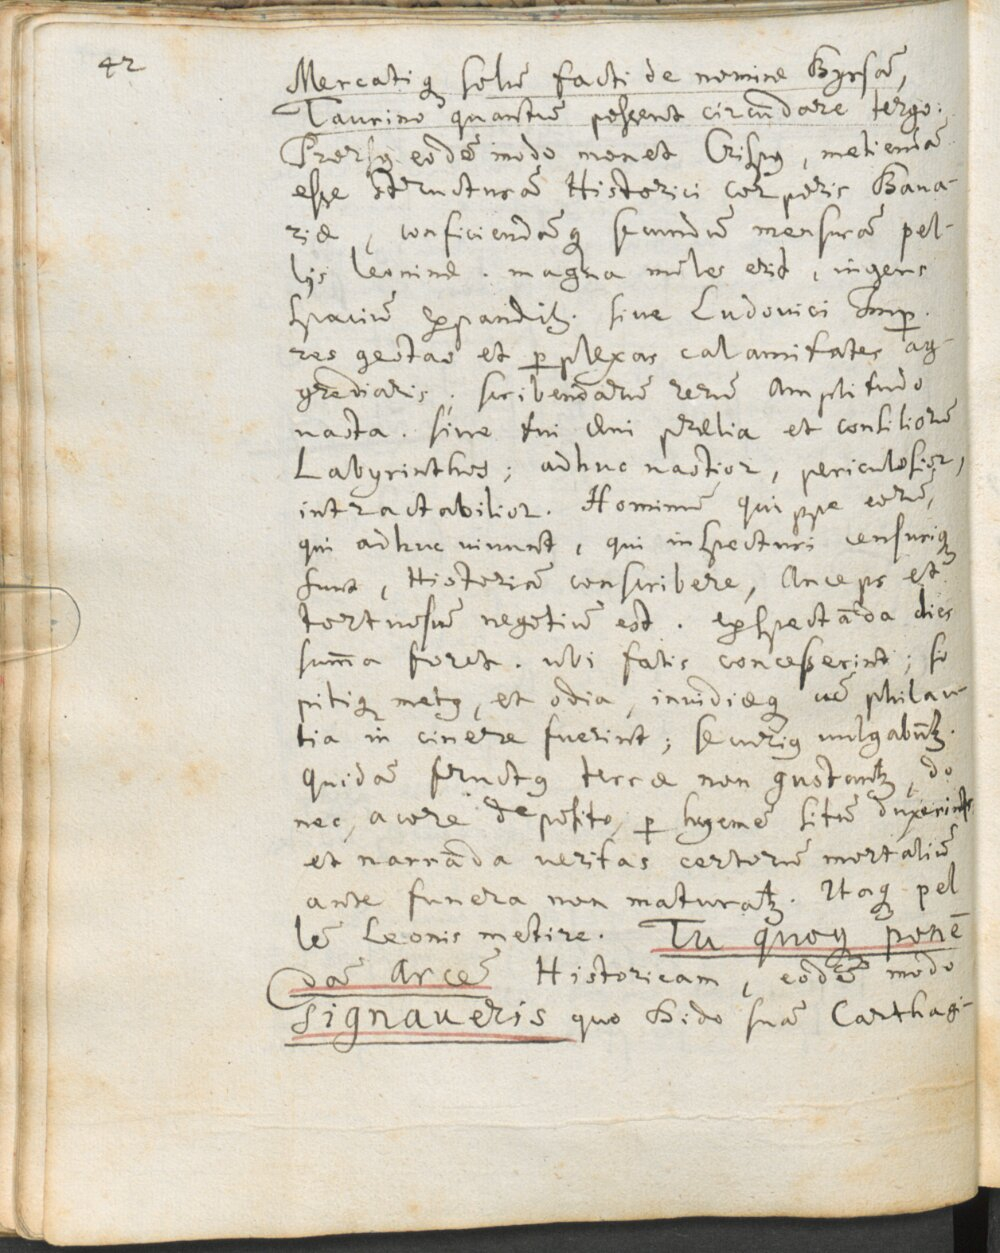 42
Mercatiq₃ solũ facti de nomine Byrsã,
Taurino quantũ possent circũdare tergo:
Prorsꝰ eodẽ modo monet Crispꝰ, metiendã
esse structurã Historici corporis Bava-
riæ, conficiendãq₃ secundũ mensurã pel-
lis leoninæ. magna moles erit, ingens
spaciũ expandit₃. sive Ludovici Imp.
res gestas et ꝑplexas calamitates ag-
grediaris; scribendarũ rerũ Amplitudo
vasta. sive tui ævi prælia et consiliorũ
Labyrinthos; adhuc vastior, periculosior,
intractabilior. Hominũ quippe eorũ,
qui adhuc vivunt, qui inspecturi censuriq₃
sunt, Historicã conscribere, Anceps et
tortuosũ negotiũ est. expectãda dies
sum̃a foret. ubi fatis concesserint; so
pitiq₃ metꝰ, et odia, invidiæq₃ cũ philau-
tia in cinere fuerint; securiꝰ vulgabũt₃.
Quidã fructꝰ terræ non gustant₃, do
nec, acore deposito, ꝑ hyemẽ sitũ duxerint
et narrãda veritas certorũ mortaliũ
ante funera non maturat₃. Itaq₃ pel
lẽ Leonis metire. Tu quoq₃ ponẽ
dã Arcẽ Historicam, eodẽ modo
signaveris quo Dido suã Carthagi-